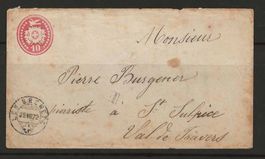 10
Monsieur
Pierre Burgener
à St Sulpice
Val de Travers